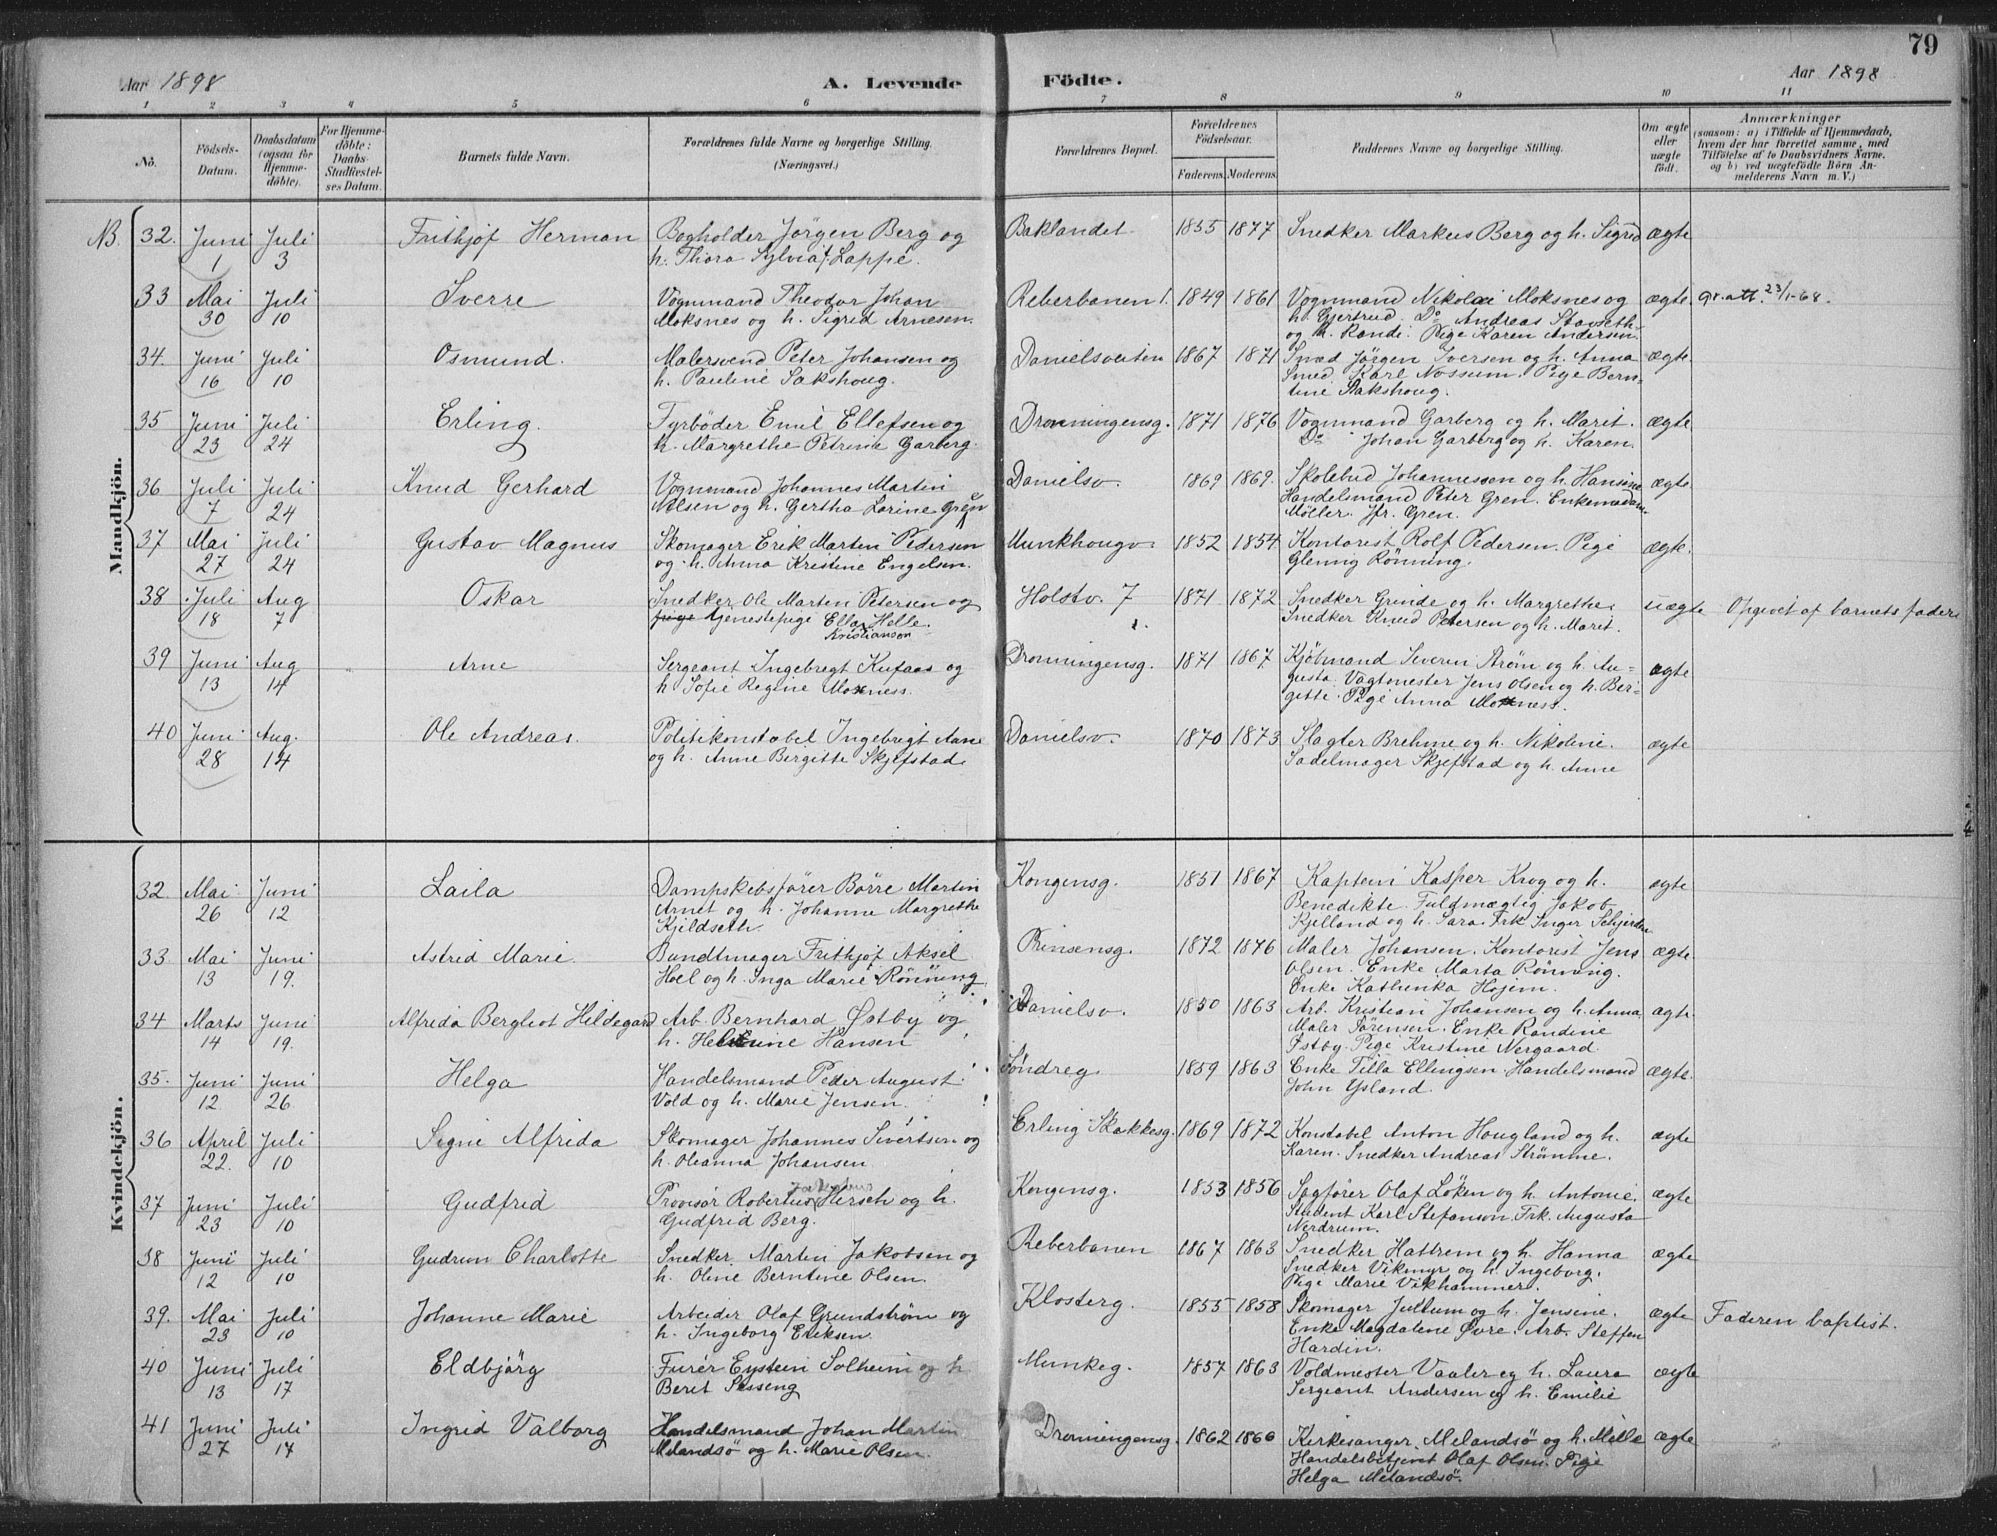 79
Aar 1898
A. Levende Födte.
Aar 1898
1 2 3 4 5 6 7 8 9 10 11
No.
Födsels-
Datum.
Daabsdatum
(ogsaa for
Hjemme-
döbte).
For Hjemme-
döbte:
Daabs-
Stadfæstel-
ses Datum.
Barnets fulde Navn.
Forældrenes fulde Navne og borgerlige Stilling.
(Næringsvei.)
Forældrenes Bopæl.
Forældrenes
Födselsaar.
Faderens. Moderens.
Faddernes Navne og borgerlige Stilling.
Om ægte
eller
uægte
födt.
Anmærkninger
(saasom: a) i Tilfælde af Hjemmedaab,
hvem der har forrettet samme, med
Tilföielse af to Daabsvidners Navne.
og b) ved uægtefödte Börn An-
melderens Navn m. V.)
Mandkjön.
NB. 32. Juni 1 Juli 3 Frithjof Herman Bogholder Jörgen Berg og
h. Thora Sylvia f. Lappe.
Baklandet 1855 1877 Snedker Markus Berg og h. Sigrid ægte
33 Mai 30 Juli 10 Sverre Vognmand Theodor Johan
Moksnes og h. Sigrid Arnesen.
Reberbanen 1. 1849 1861 Vognmand Nikolai Moksnes og
h. Gjertrud. Do Andreas Stavseth
og h. Randi. Pige Karen Andersen.
ægte. gr. att. 23/1-68.
34. Juni 16 Juli 10 Osmund. Malersvend Peter Johansen og
h. Pauline Sakshoug.
Danielsveiten 1867 1871 Smed Jörgen Iversen og h. Anna
Smed Karl Nossum. Pige Bern-
tine Sakshoug.
ægte.
35 Juni 23 Juli 24 Erling. Fyrböder Emil Ellefsen og
h. Margrethe Petrine Garberg.
Dronningensg. 1871 1876 Vognmand Garberg og h. Marit.
Do Johan Garberg og h. Karen.
ægte
36 Juli 7 Juli 24 Knud Gerhard Vognmand Johannes Martin
Nilsen og h. Gertha Lorine Gren
Danielsv. 1869 1869. Skolebud Johannessen og h. Hansine
Handelsmand Peter Gren. Enkemadam
Möller. Jfr. Gren.
ægte
37 Mai 27 Juli 24 Gustav Magnus Skomager Erik Martin Pedersen
og h. Anna Kristine Engelsen.
Munkhougv. 1852 1854 Kontorist Rolf Pedersen. Pige
Glennig Rönning.
ægte.
38 Juli 18 Aug 7 Oskar Snedker Ole Martin Petersen og
Tjenestepige Ella Helle
Kristianson
Holstv. 7 1871 1872 Snedker Grinde og h. Margrethe.
Snedker Knud Petersen og h. Marit.
uægte Opgivet af barnets fader
39 Juni 13 Aug 14 Arne Sergeant Ingebregt Kufaas og
h Sofie Regine Moxness.
Dronningensg. 1871 1867 Kjöbmand Severin Ström og h. Au-
gusta. Vagtmester Jens Olsen og h. Ber-
gitte. Pige Anna Moxness.
ægte
40 Juni 28 Aug. 14 Ole Andreas. Politikonstabel Ingebrigt Aune
og h. Anne Bergitte Skjefstad.
Danielsv. 1870 1873 Slagter Brehme og h. Nikoline.
Sadelmager Skjefstad og h. Anne
ægte
Kvindekjön.
32 Mai 26 Juni 12 Laila Dampskibsfører Börre Martin
Arnet og h. Johanne Margrethe
Kjeldseth.
Kongensg. 1851 1867 Kaptein Kasper Krog og h.
Benedikte. Fuldmægtig Jakob
Kjelland og h. Sara. Frk Inger Schjerden
ægte
33. Mai 13 Juni 19. Astrid Marie. Bundtmager Frithjof Aksel
Hoel og h. Inga Marie Rönning
Prinsensg. 1872 1876 Maler Johansen. Kontorist Jens
Olsen. Enke Marta Rönning.
Enke Kathinka Hojem.
ægte.
34 Marts 14 Juni 19. Alfrida Bergliot Hildegard Arb. Bernhard Østby og
h. Helene Hansen
Danielsv. 1850 1863 Arb. Kristian Johansen og h. Anna
Maler Sörensen. Enke Randine
Østby. Pige Kristine Nergaard.
ægte.
35. Juni 12. Juni 26 Helga Handelsmand Peder August
Vold og h. Marie Jensen.
Söndreg. 1859 1863 Enke Tilla Ellingsen. Handelsmand
John Ysland.
ægte.
36 April 22. Juli 10 Signe Alfrida Skomager Johannes Sivertsen og
h. Oleanna Johansen.
Erling Skakkesg. 1869 1872 Konstabel Anton Hougland og h.
Karen. Snedker Andreas Strömme.
ægte
37 Juni 23 Juli 10 Gudfrid Provisor Robertus Hirsch og h.
Gudfrid Berg.
Kongensg. 1853 1856 Sagfører Olaf Löken og h. Antonie.
Student Karl Stefanson. Frk. Augusta
Nerdrum.
ægte
38 Juni 12 Juli 10 Gudrun Charlotte Snedker Martin Jakobsen og
h. Oline Berntine Olsen.
Reberbanen 1867 1863 Snedker Hattrem og h. Hanna
Snedker Vikmyr og h. Ingeborg.
Pige Marie Vikhammer.
ægte
39. Mai 23 Juli 10 Johanne Marie Arbeider Olaf Grundström og
h. Ingeborg Eriksen.
Klosterg. 1855 1858 Skomager Jullum og h. Jensine.
Enke Magdalene Øvre. Arb. Steffen
Hardin.
ægte Faderen baptist.
40 Juni 13 Juli 17 Eldbjörg Furér Eystein Solheim og h
Berit Sesseng
Munkeg. 1857 1863 Voldmester Vaaler og h. Laura
Sergeant Andersen og h. Emilie
ægte
41 Juni 27 Juli 17 Ingrid Valborg Handelsmand Johan Martin
Melandsö og h. Marie Olsen.
Dronningensg. 1862 1866 Kirkesanger Melandsö og h. Mille
Handelsbetjent Olaf Olsen. Pige
Helga Melandsö.
ægte